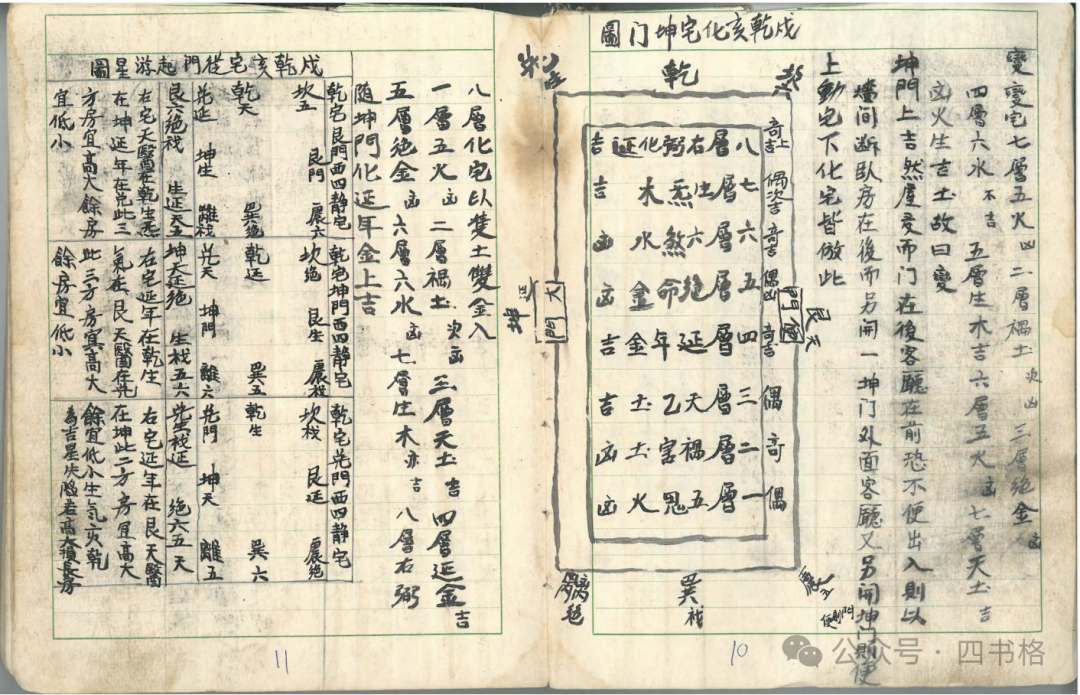 變變宅七層五火凶二層禍土次凶三層絶金凶
四層六水不吉五層生木吉六層五火凶七層天土吉
文火生吉土故曰變
坤門上吉然屋多而门在後客廳在前恐不便出入則以
墻间断臥房在後而另開一坤门外面客廳又另開坤门則便
上動宅下化宅皆倣此
戍乾亥化宅坤门圖
乾
八層右弼化延吉
七層生炁木吉
六層六煞水凶
五層絶命金凶
四層延年金吉
三層天乙土吉
二層禍害土凶
一層五鬼火凶
奇吉上
偶次吉
奇吉
偶凶
奇吉
偶
奇
偶
艮天
巽
便門
大門
坤延
10
公众号·四书格
八層化宅以雙土雙金入
一層五火凶二層禍土次凶三層天土吉四層延金吉
五層絶金凶六層六水凶七層生木亦吉八層右弼
随坤門化延年金上吉
戍乾亥宅從門起游星圖
乾宅艮門西四静宅
坎五艮門震六
乾天巽絶
兑延坤生離禍
艮六絶禍生延天五
右宅天醫在乾生炁
在坤延年在兑此三
方房宜高大餘房
宜低小
乾宅坤門西四静宅
坎絶艮生震禍
乾延巽五
兑天坤門離六
坤天延絶生禍五六
右宅延年在乾生
氣在艮天醫在兑
此三方房宜高大
餘房宜低小
乾宅兑門西四静宅
坎禍艮延震絶
乾生巽六
兑門坤天離五
兑生禍延絶六五天
右宅延年在艮天醫
在坤此二方房宜高大
餘宜低小生氣在乾
為吉星失陷若高大損長房
11